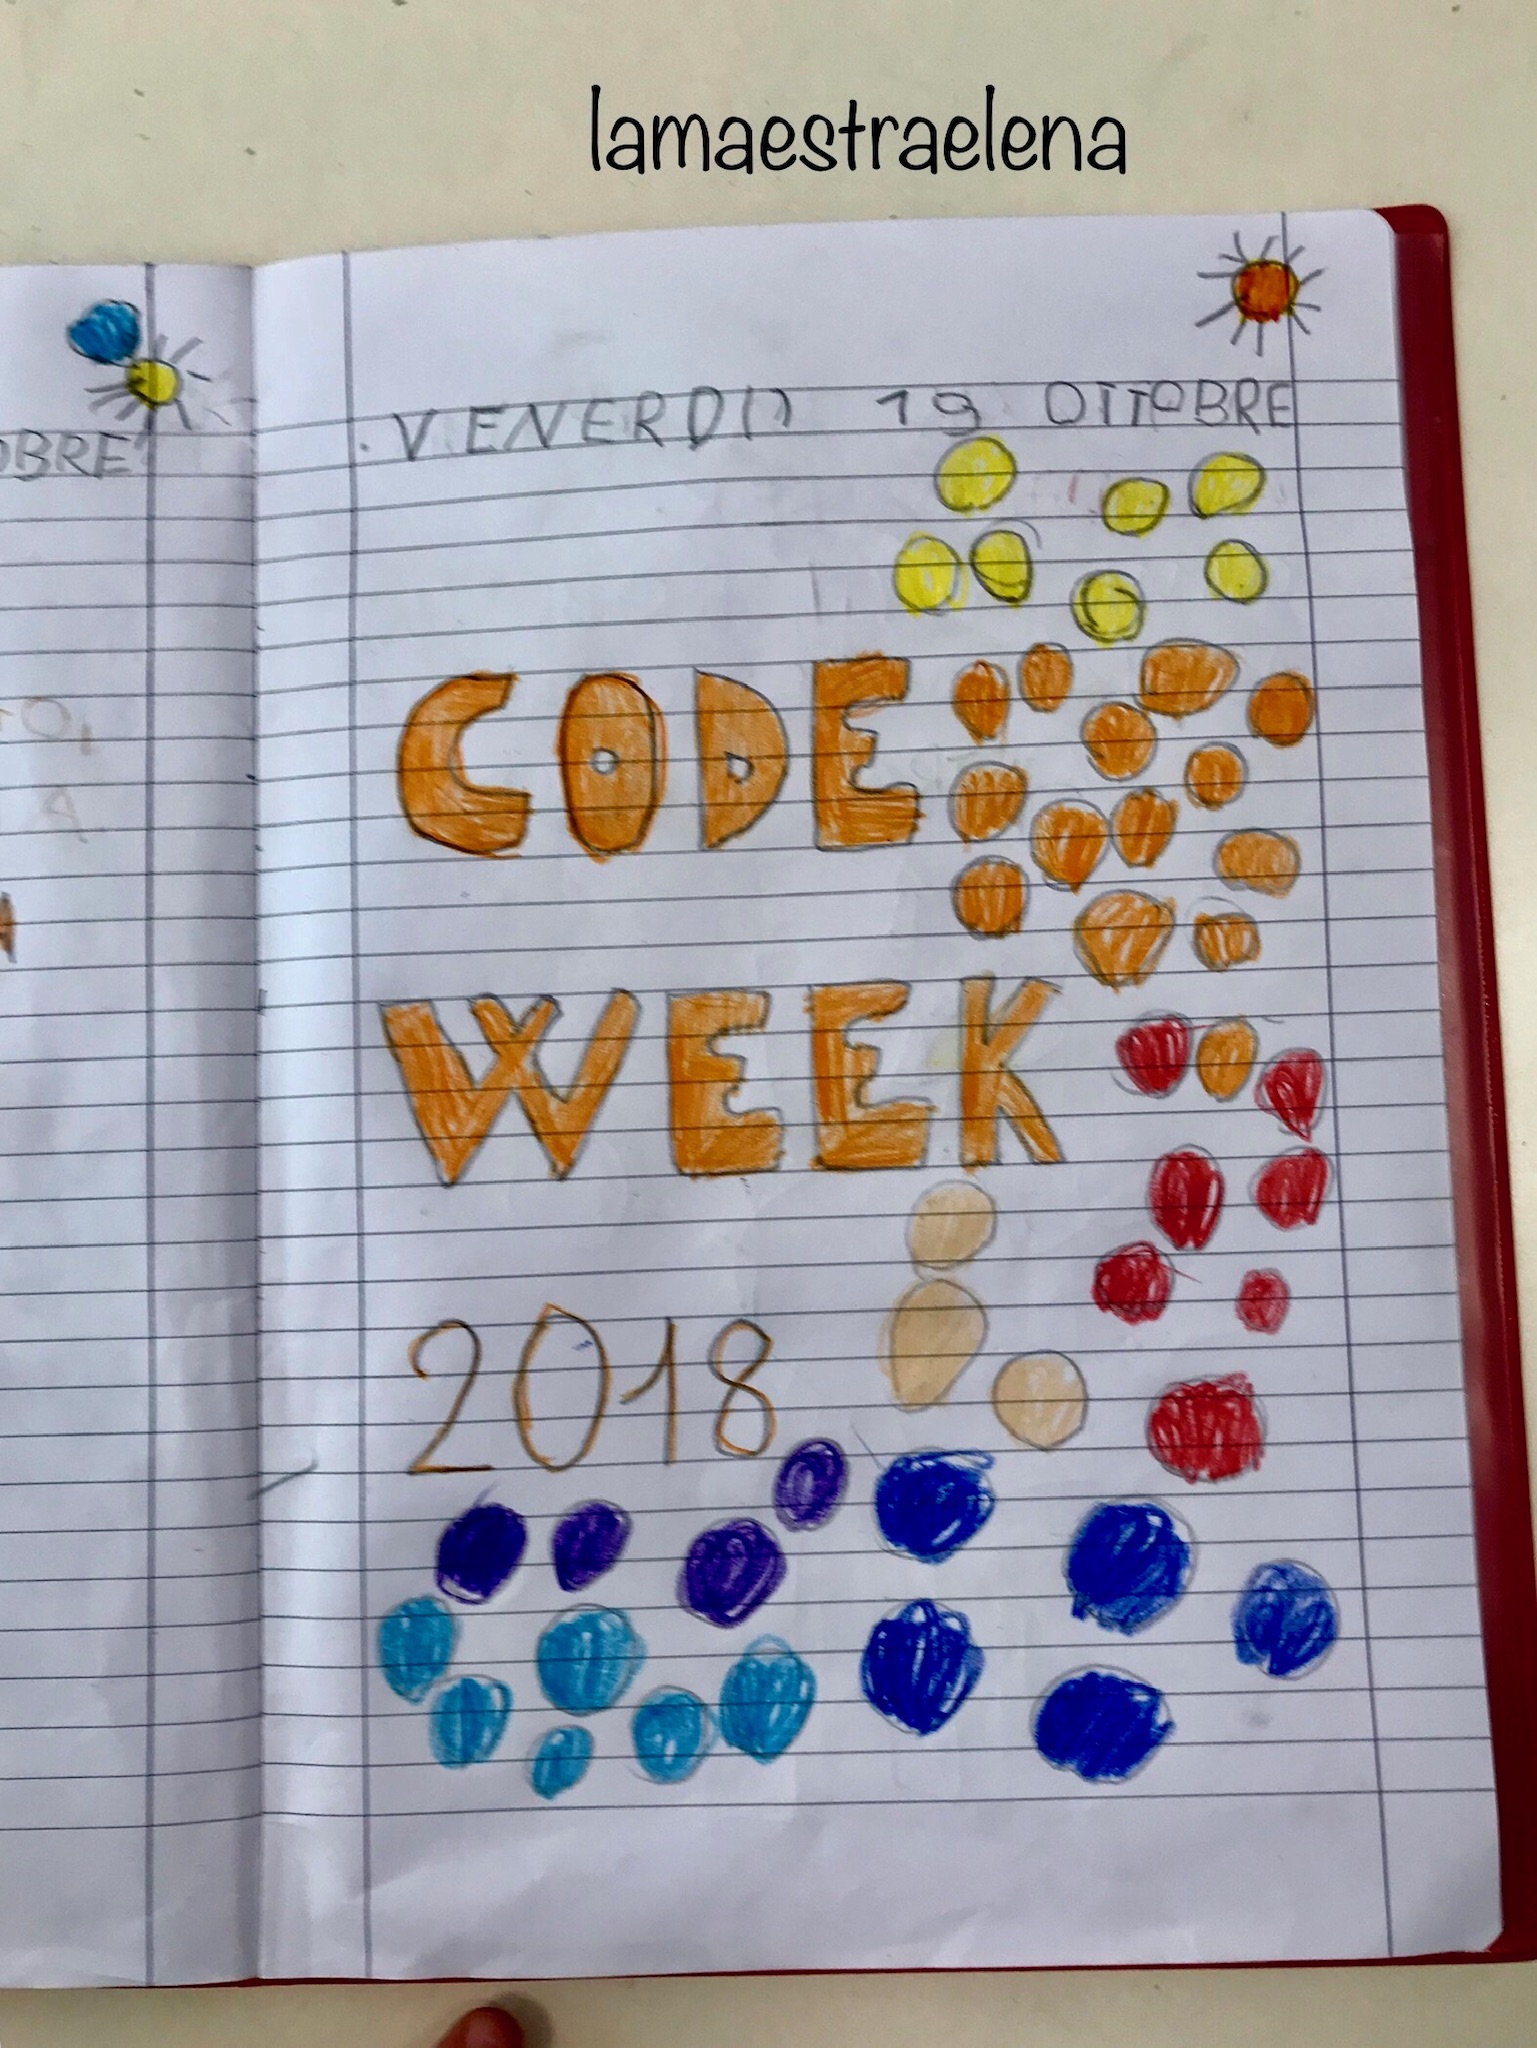 lamaestraelena
VENERDI 19 OTTOBRE
OBRE
CODE
WEEK
2018